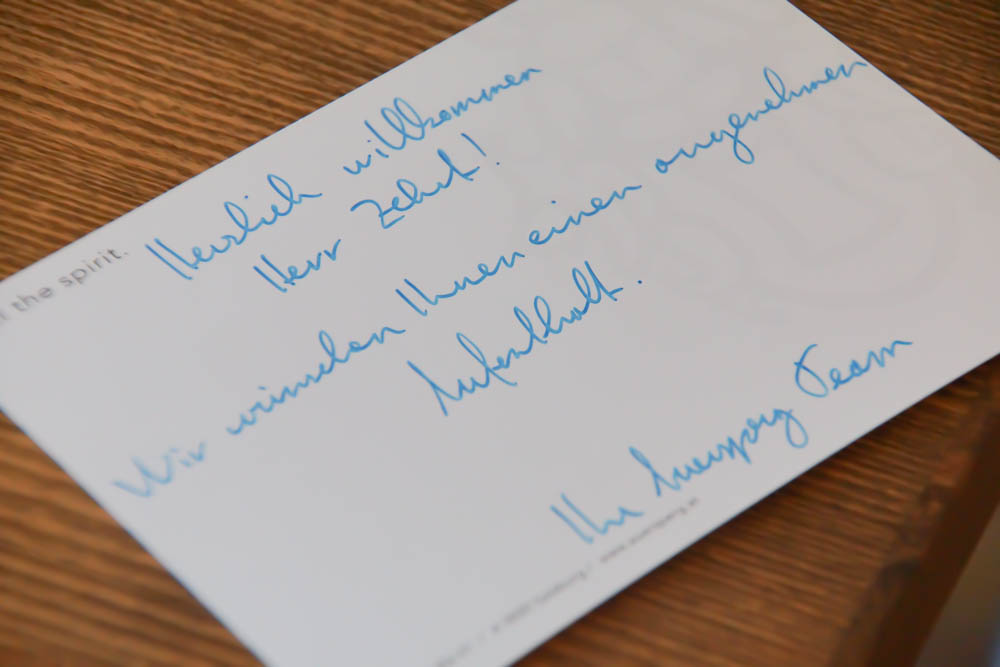 the spirit.
Herzlich willkommen
Herr Zehnt!
Wir wünschen Ihnen einen angenehmen
Aufenthalt.
Ihr Auersperg Team
www.auersperg.at